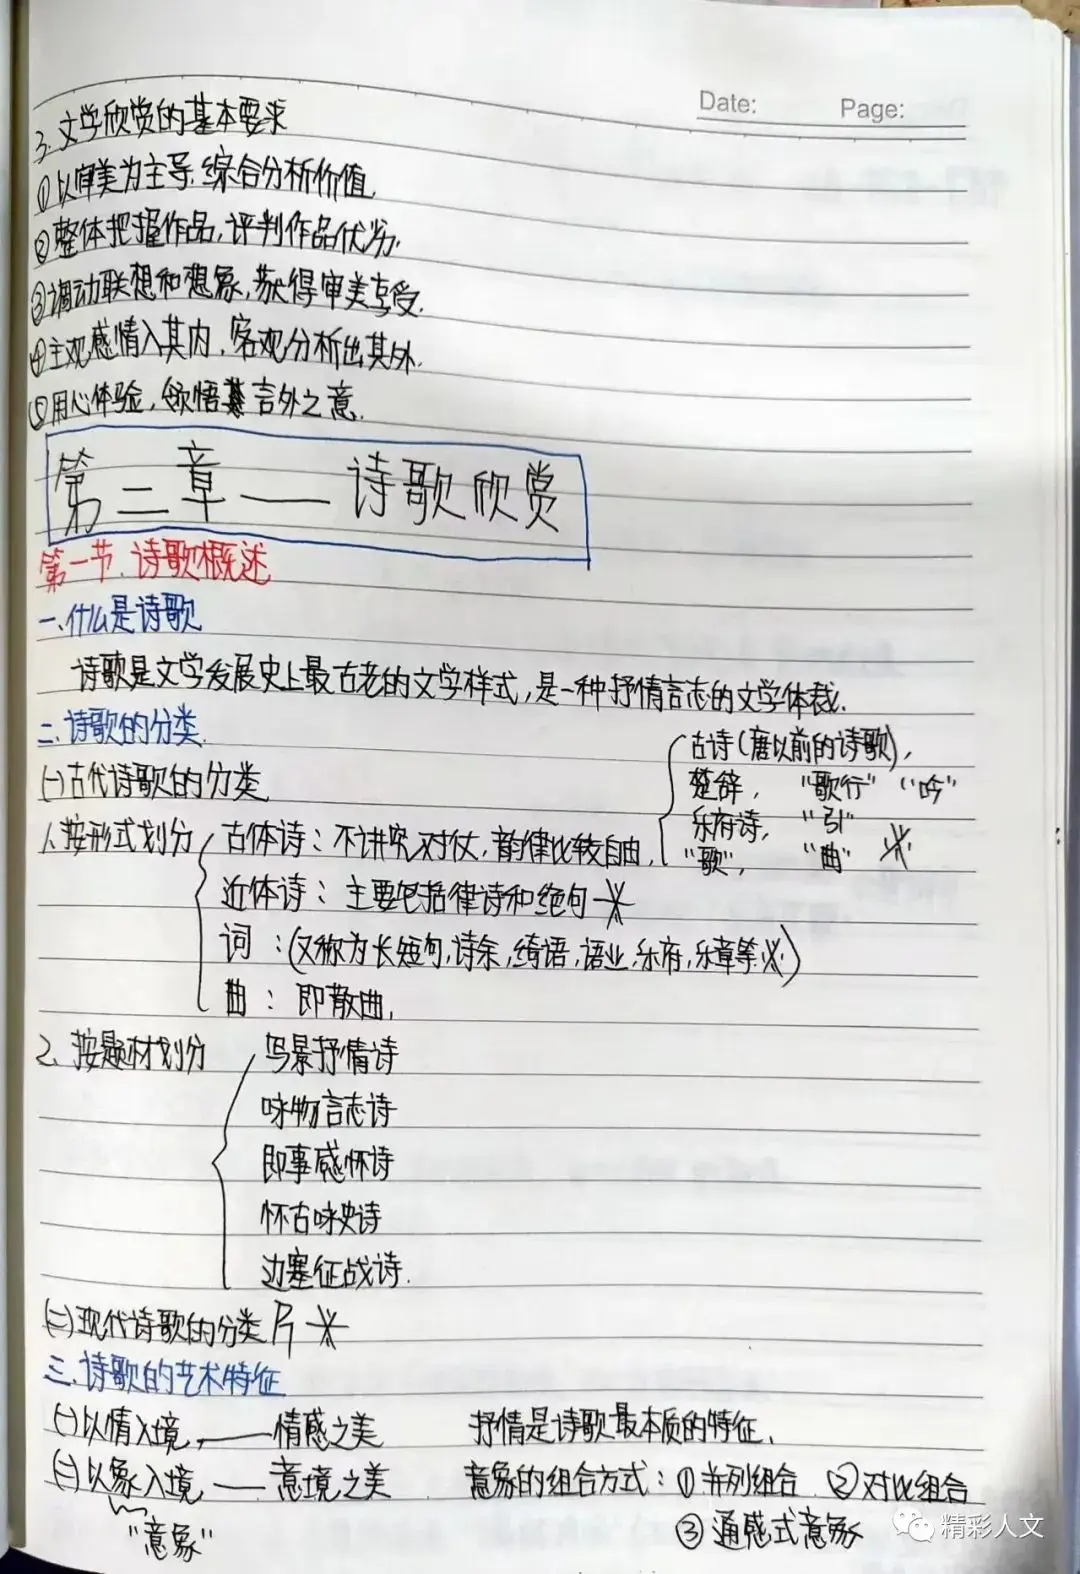 Date:    Page:
3.文学欣赏的基本要求
①以审美为主导.综合分析价值.
②整体把握作品,评判作品优劣.
③调动联想和想象,获得审美享受.
④主观感情入其内.客观分析出其外.
⑤用心体验,领悟其言外之意.
第二章——诗歌欣赏
第一节.诗歌概述
一、什么是诗歌
诗歌是文学发展史上最古老的文学样式,是一种抒情言志的文学体裁.
二.诗歌的分类.
(一)古代诗歌的分类
1.按形式划分
古体诗:不讲究对仗,韵律比较自由.
古诗(唐以前的诗歌),
楚辞, "歌行" "吟"
乐府诗, "引"
"歌", "曲"
近体诗:主要包括律诗和绝句
词:(又称为长短句,诗余,绮语,语业,乐府,乐章等)
曲:即散曲.
2.按题材划分
写景抒情诗
咏物言志诗
即事感怀诗
怀古咏史诗
边塞征战诗.
(二)现代诗歌的分类
三.诗歌的艺术特征
(一)以情入境,——情感之美 抒情是诗歌最本质的特征.
(二)以象入境——意境之美 意象的组合方式:①并列组合 ②对比组合
"意象" ③通感式意象
精彩人文